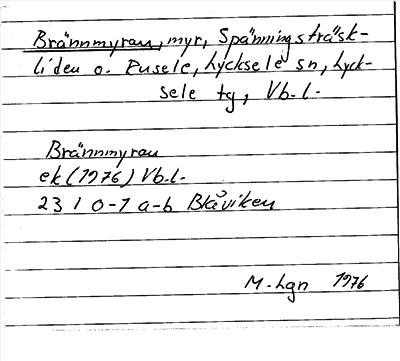 Brännmyran, myr, Spänningsträsk-
liden o. Rusele, Lycksele sn, Lyck-
sele tg, Vb.l.
Brännmyran
ek (1976) Vb.l.
23 I 0-1 a-b Blåviken
M. Lgn 1976